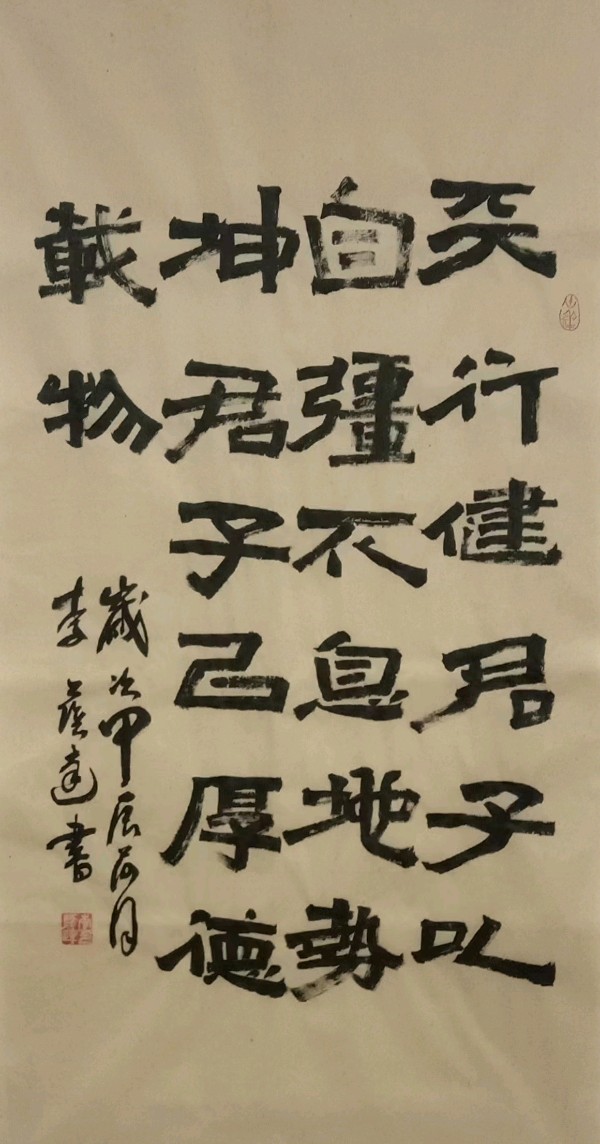 天行健君子以
自彊不息地勢
坤君子㠯厚德
載物
歲次甲辰荷月
李 達書